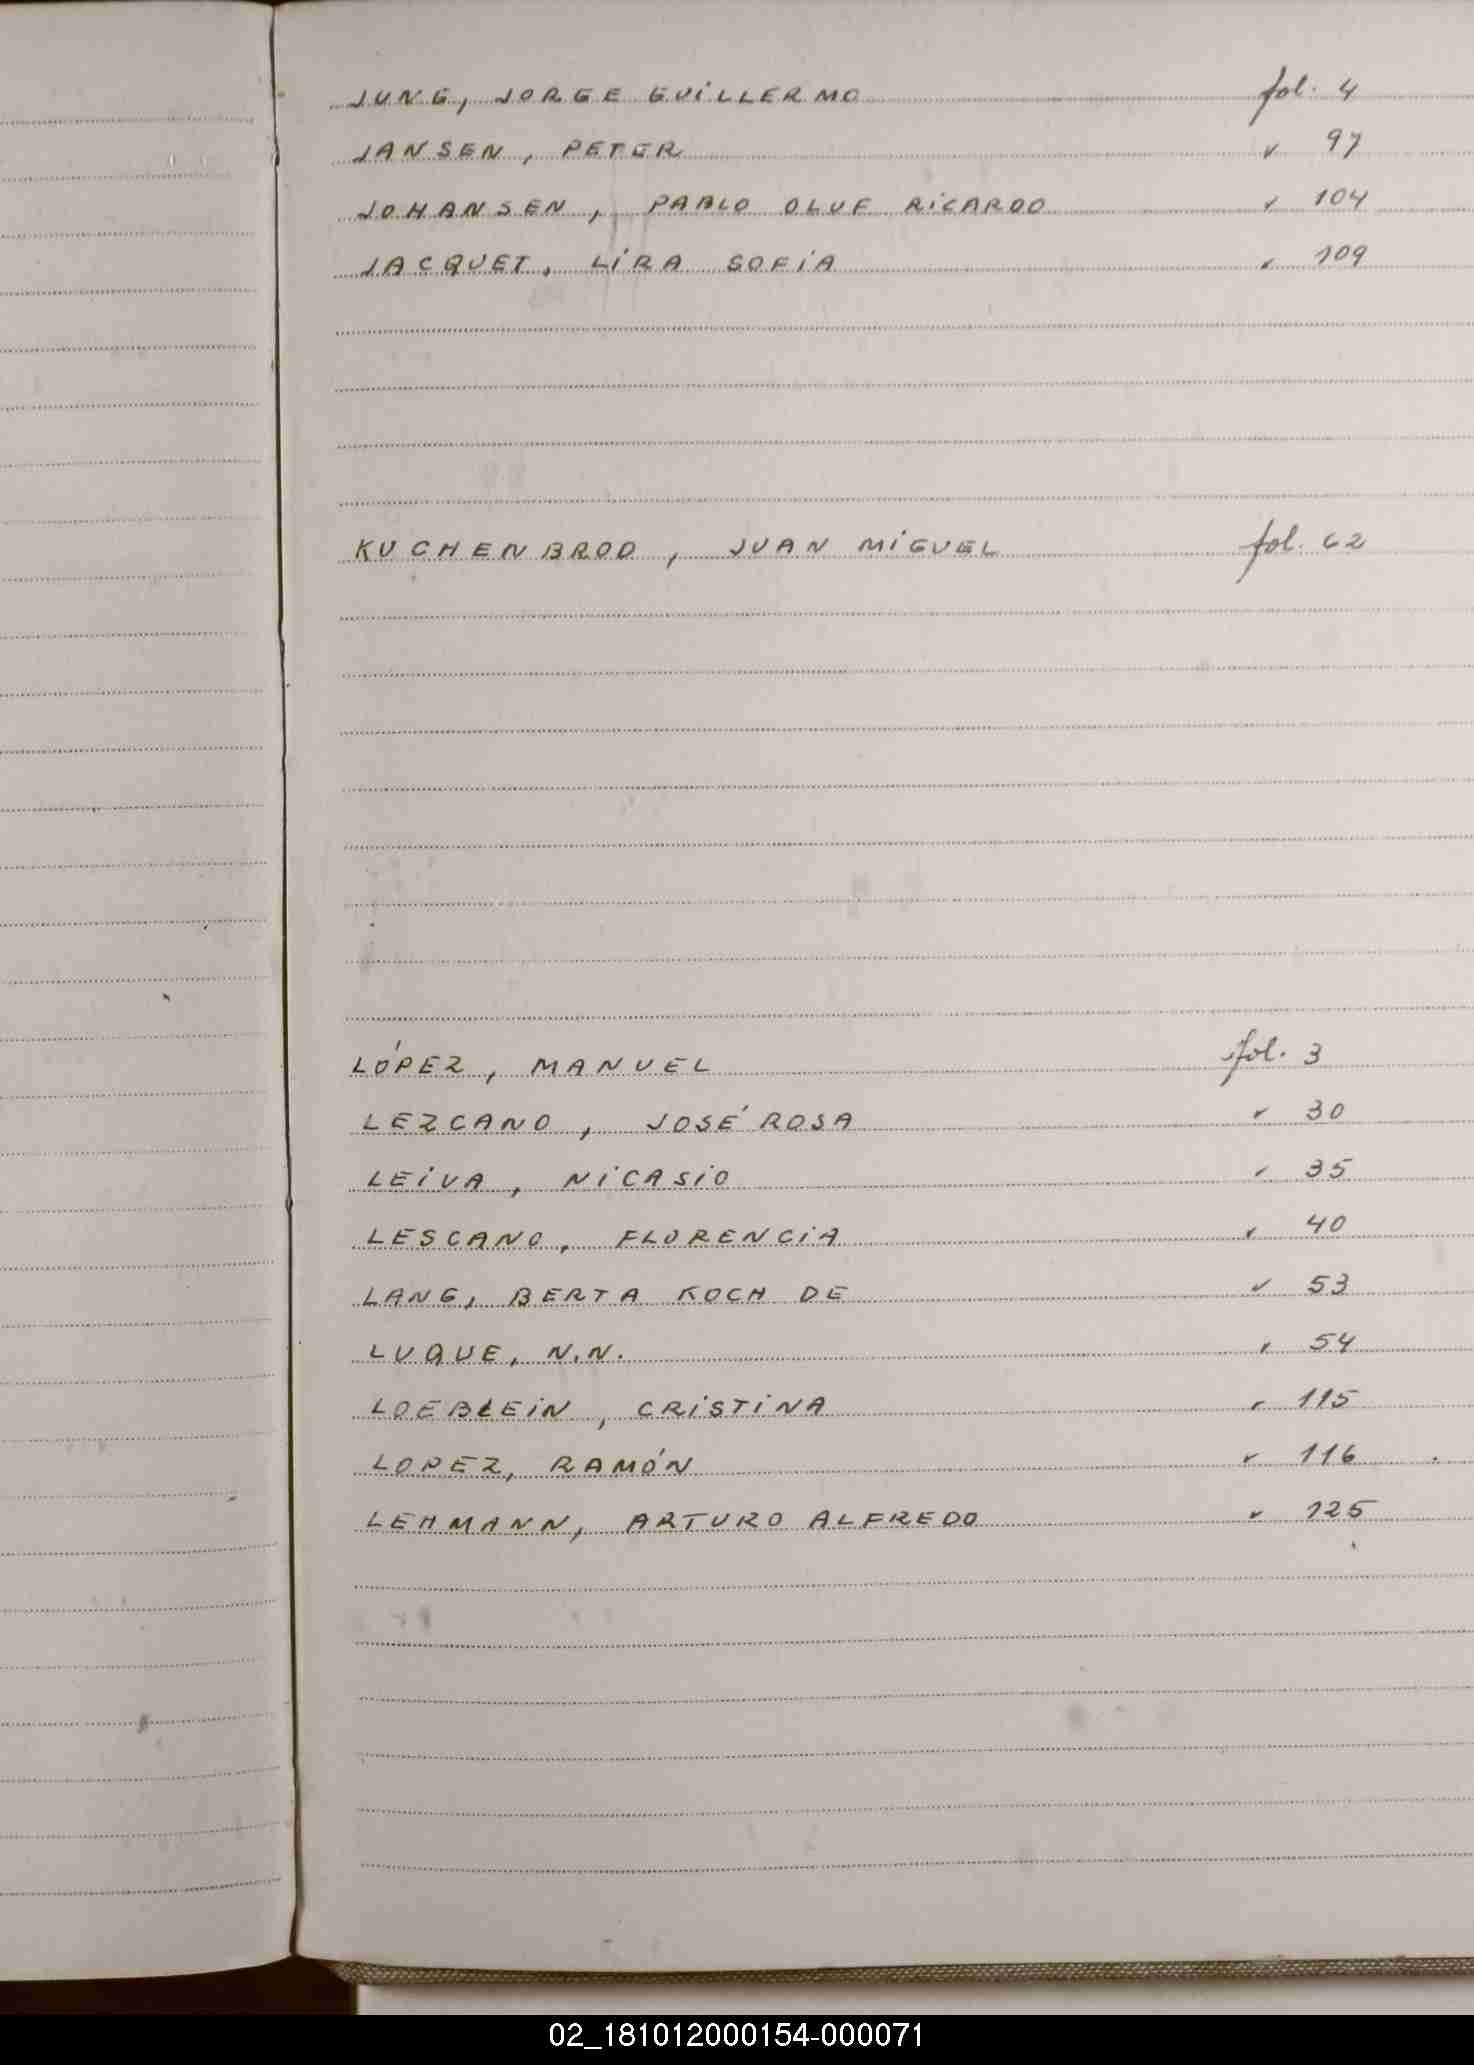 JUNG, JORGE GUILLERMO fol. 4
JANSEN, PETER " 97
JOHANSEN, PABLO OLUF RICARDO " 104
JACQUET, LIRA SOFIA " 109
KUCHENBROD, JUAN MIGUEL fol. 62
LÓPEZ, MANUEL fol. 3
LEZCANO, JOSÉ ROSA " 30
LEIVA, NICASIO " 35
LESCANO, FLORENCIA " 40
LANG, BERTA KOCH DE " 53
LUQUE, N.N. " 54
LOEBLEIN, CRISTINA " 115
LOPEZ, RAMÓN " 116
LEHMANN, ARTURO ALFREDO " 125
02_181012000154-000071